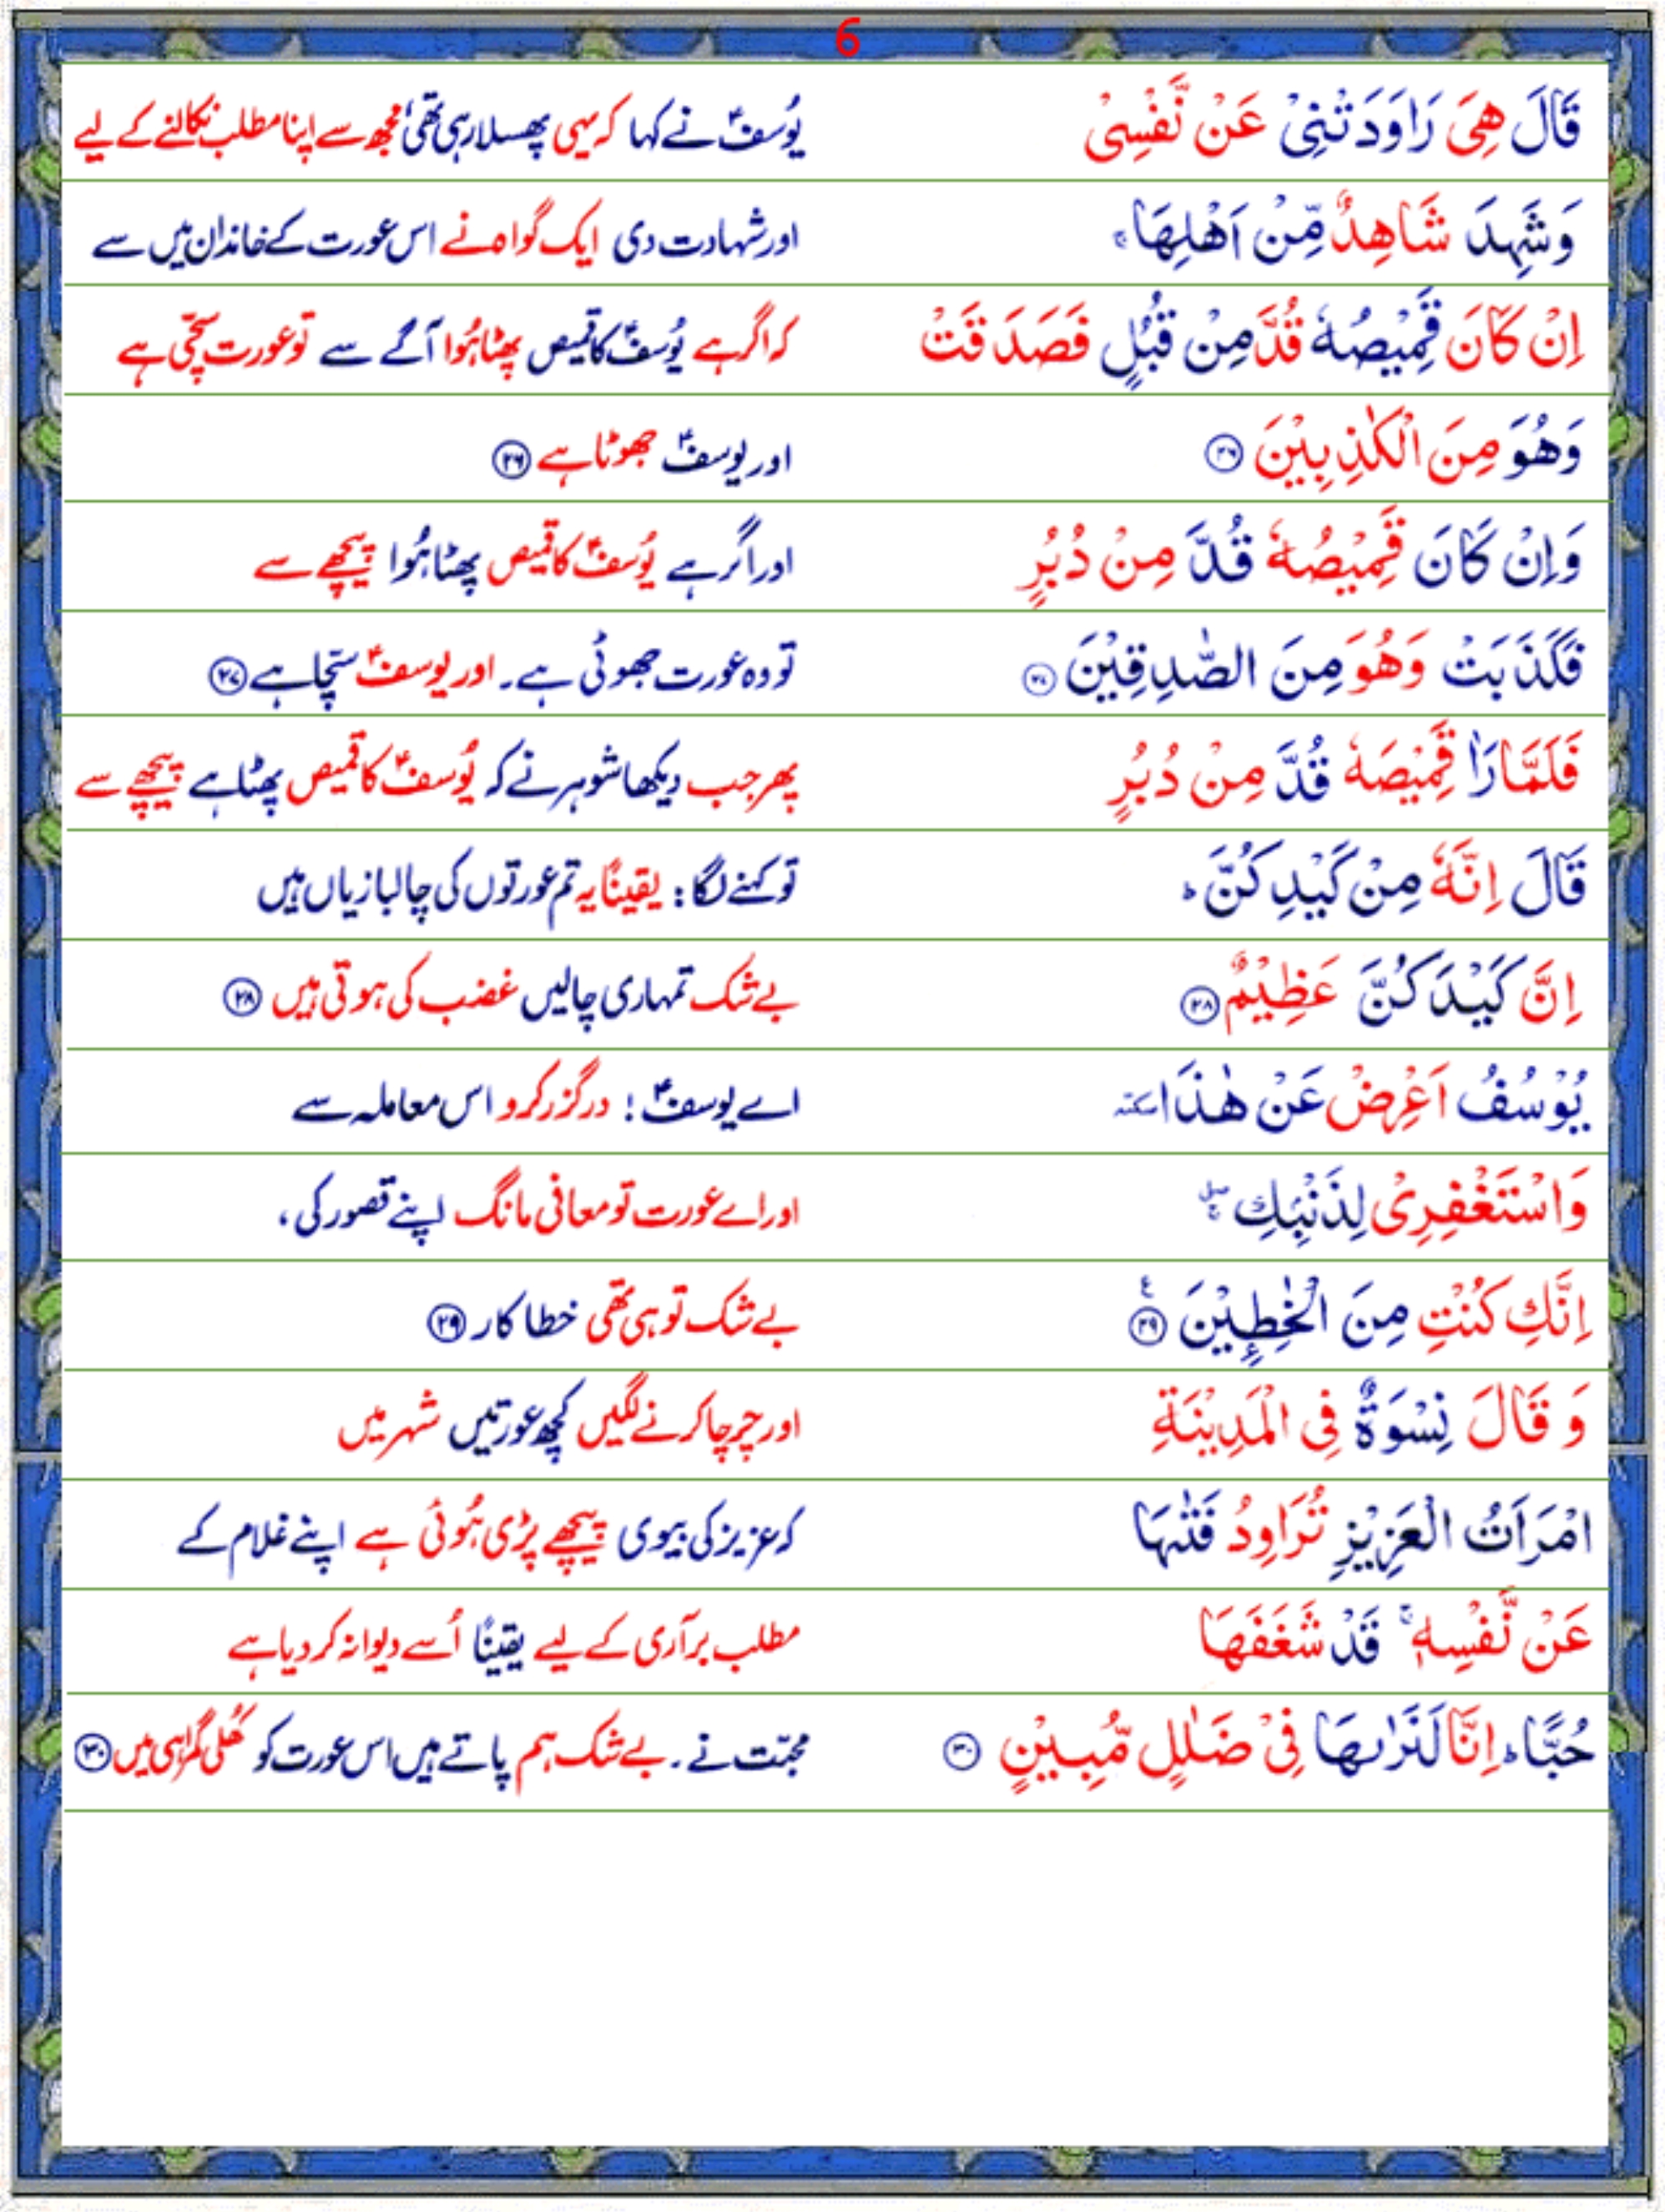 6
قَالَ هِىَ رَاوَدَتْنِىْ عَنْ نَّفْسِىْ یُوسفؑ نے کہا کہ یہی پھسلا رہی تھی مجھ سے اپنا مطلب نکالنے کے لیے
وَشَهِدَ شَاهِدٌ مِّنْ اَهْلِهَا ۚ اور شہادت دی ایک گواہ نے اس عورت کے خاندان میں سے
اِنْ كَانَ قَمِيْصُهٗ قُدَّ مِنْ قُبُلٍ فَصَدَقَتْ کہ اگر ہے یُوسفؑ کا قمیص پھٹا ہُوا آگے سے تو عورت سچّی ہے
وَهُوَ مِنَ الْكٰذِبِيْنَ ۲۶ اور یوسفؑ جھوٹا ہے ۲۶
وَاِنْ كَانَ قَمِيْصُهٗ قُدَّ مِنْ دُبُرٍ اور اگر ہے یُوسفؑ کا قمیص پھٹا ہُوا پیچھے سے
فَكَذَبَتْ وَهُوَ مِنَ الصّٰدِقِيْنَ ۲۷ تو وہ عورت جھوٹی ہے۔ اور یوسفؑ سچّا ہے ۲۷
فَلَمَّا رَاٰ قَمِيْصَهٗ قُدَّ مِنْ دُبُرٍ پھر جب دیکھا شوہر نے کہ یُوسفؑ کا قمیص پھٹا ہے پیچھے سے
قَالَ اِنَّهٗ مِنْ كَيْدِكُنَّ ؕ تو کہنے لگا: یقیناً یہ تم عورتوں کی چالبازیاں ہیں
اِنَّ كَيْدَكُنَّ عَظِيْمٌ ۲۸ بے شک تمہاری چالیں غضب کی ہوتی ہیں ۲۸
يُوْسُفُ اَعْرِضْ عَنْ هٰذَا سكتہ اے یوسفؑ! درگزر کرو اس معاملہ سے
وَاسْتَغْفِرِىْ لِذَنْۢبِكِ ۖۚ اور اے عورت تو معافی مانگ اپنے قصور کی،
اِنَّكِ كُنْتِ مِنَ الْخٰطِـِٕيْنَ ۲۹ ع بے شک تو ہی تھی خطا کار ۲۹
وَ قَالَ نِسْوَةٌ فِى الْمَدِيْنَةِ اور چرچا کرنے لگیں کچھ عورتیں شہر میں
امْرَاَتُ الْعَزِيْزِ تُرَاوِدُ فَتٰٮهَا کہ عزیز کی بیوی پیچھے پڑی ہُوئی ہے اپنے غلام کے
عَنْ نَّفْسِهٖ ۚ قَدْ شَغَفَهَا مطلب برآری کے لیے یقیناً اُسے دیوانہ کر دیا ہے
حُبًّا ؕ اِنَّا لَنَرٰٮهَا فِىْ ضَلٰلٍ مُّبِيْنٍ ۳۰ محبّت نے۔ بے شک ہم پاتے ہیں اس عورت کو کھُلی گمراہی میں ۳۰